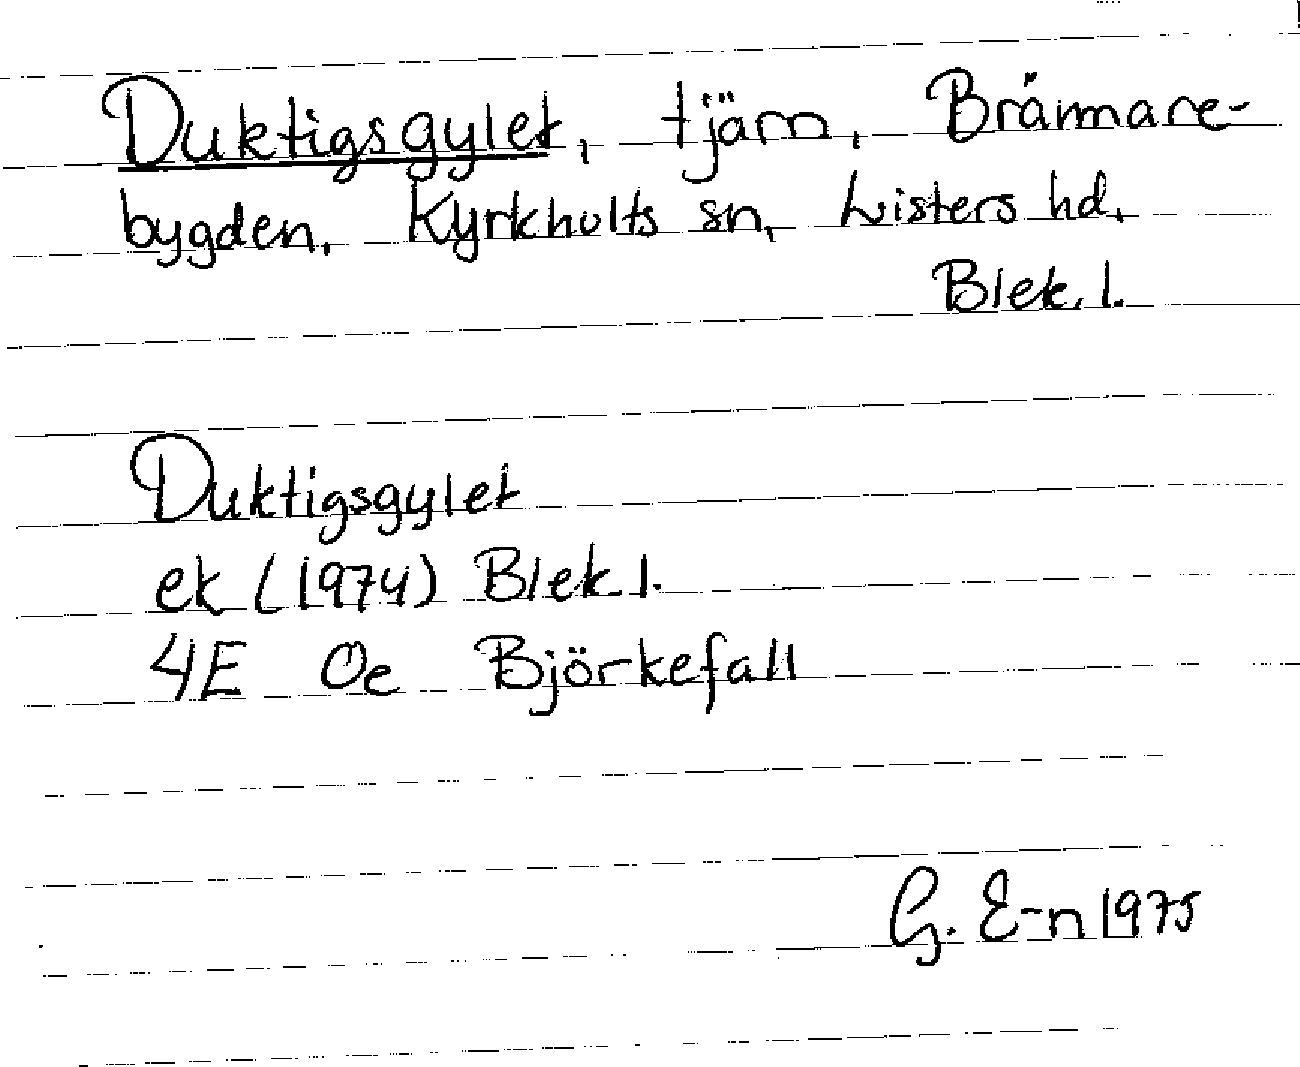 Duktigsgylet, tjärn, Brännare-
bygden, Kyrkhults sn, Listers hd,
Blek. l.
Duktigsgylet
ek (1974) Blek. l.
4E Oe Björkefall
G. E-n 1975